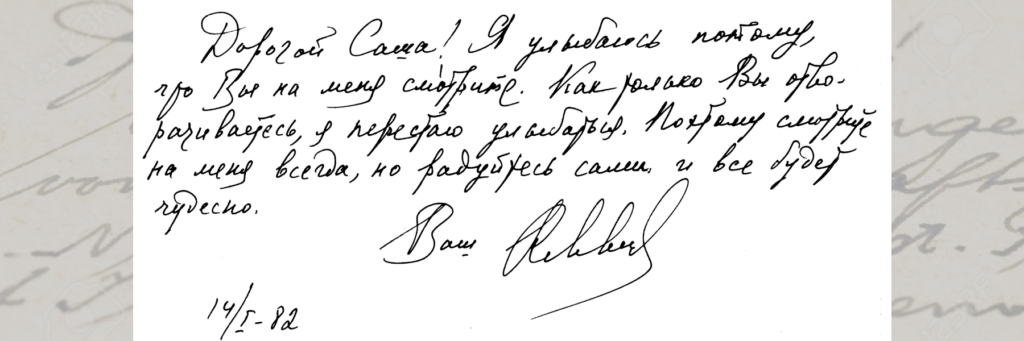 Дорогой Саша! Я улыбаюсь потому,
что Вы на меня смотрите. Как только Вы отво-
рачиваетесь, я перестаю улыбаться. Поэтому смотрите
на меня всегда, но радуйтесь сами и все будет
чудесно.
Ваш
14/I-82